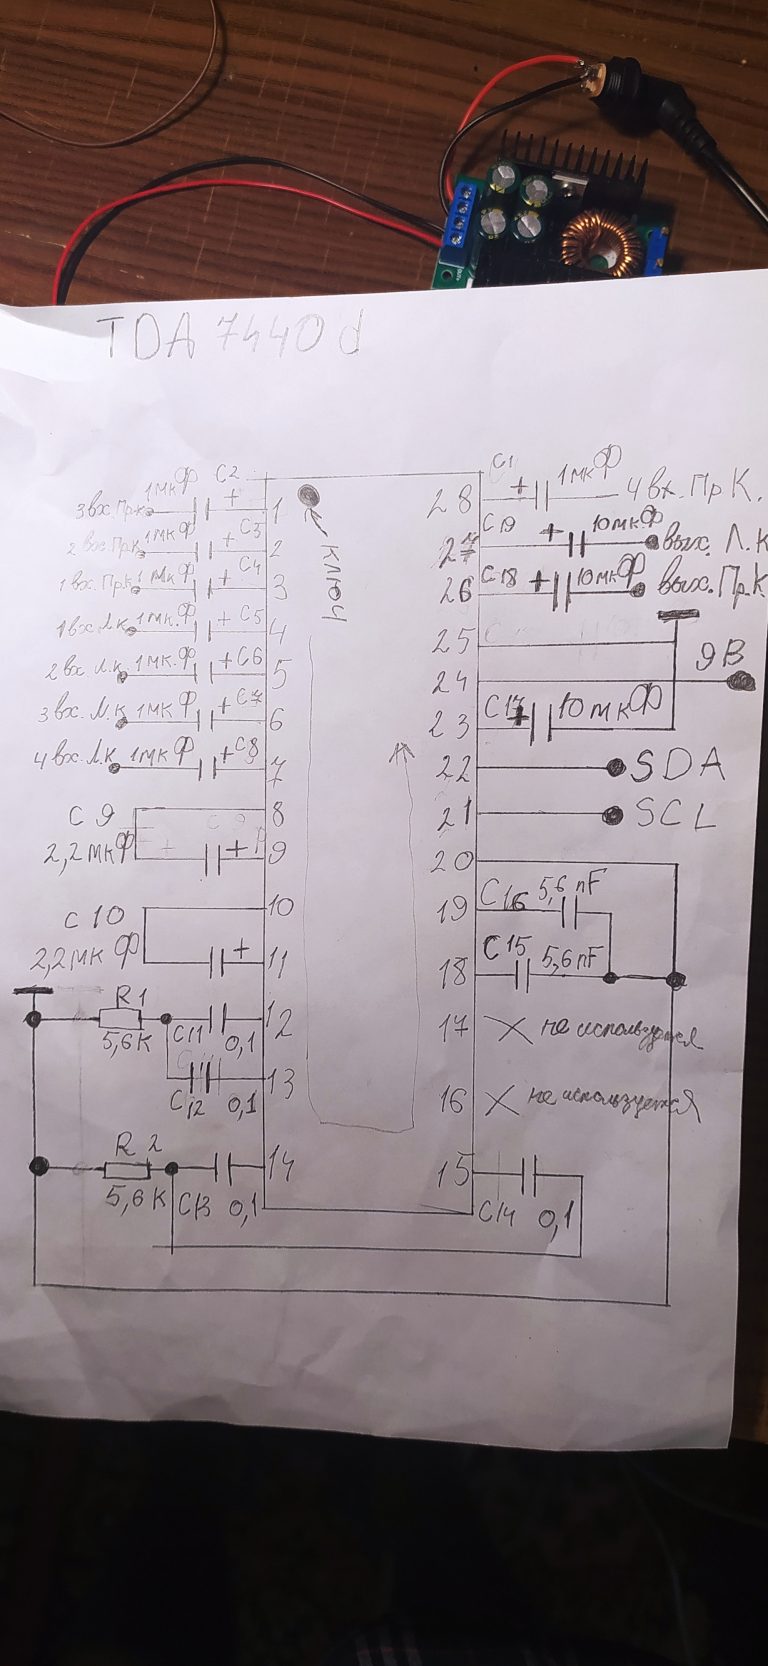 TDA 7440 d
3вх.Пр.к 1мкФ C2 + 1
2 вх.Пр.к 1мкФ C3 + 2
1вх.Пр.к 1мкФ C4 + 3
1вх.Л.к 1мк.Ф + C5 4
2 вх Л.к 1мк.Ф + C6 5
3 вх. Л.к 1мк Ф + C7 6
4 вх. Л.к 1мк Ф + C8 7
C 9 8
2,2 мкФ + 9
C 10 10
2,2 мкФ + 11
R1 5,6 K C11 0,1 12
C12 0,1 13
R 2 5,6 K C13 0,1 14
КЛЮЧ
28 C1 + 1мкФ 4 вх. Пр К.
27 C19 + 10мк.Ф вых. Л.К
26 C18 + 10мкФ вых. Пр.К
25
24 9В
23 C17 + 10 мкФ
22 SDA
21 SCL
20
19 C16 5,6 nF
18 C15 5,6 nF
17 X не используется
16 X не используется
15 C14 0,1